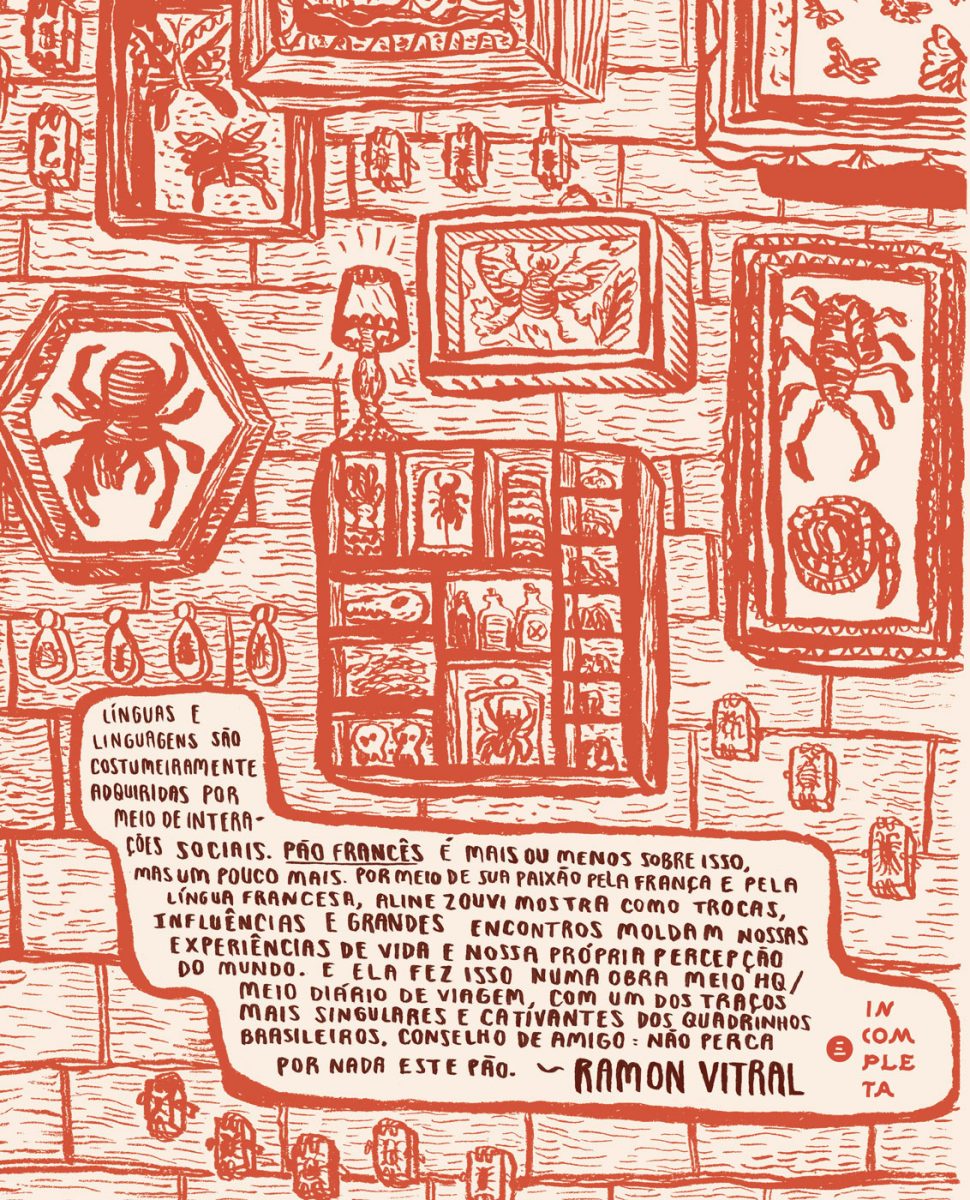 LÍNGUAS E
LINGUAGENS SÃO
COSTUMEIRAMENTE
ADQUIRIDAS POR
MEIO DE INTERA-
ÇÕES SOCIAIS. PÃO FRANCÊS É MAIS OU MENOS SOBRE ISSO,
MAS UM POUCO MAIS. POR MEIO DE SUA PAIXÃO PELA FRANÇA E PELA
LÍNGUA FRANCESA, ALINE ZOUVI MOSTRA COMO TROCAS,
INFLUÊNCIAS E GRANDES ENCONTROS MOLDAM NOSSAS
EXPERIÊNCIAS DE VIDA E NOSSA PRÓPRIA PERCEPÇÃO
DO MUNDO. E ELA FEZ ISSO NUMA OBRA MEIO HQ/
MEIO DIÁRIO DE VIAGEM, COM UM DOS TRAÇOS
MAIS SINGULARES E CATIVANTES DOS QUADRINHOS
BRASILEIROS. CONSELHO DE AMIGO: NÃO PERCA
POR NADA ESTE PÃO. ~ RAMON VITRAL
IN
COM
PLE
TA